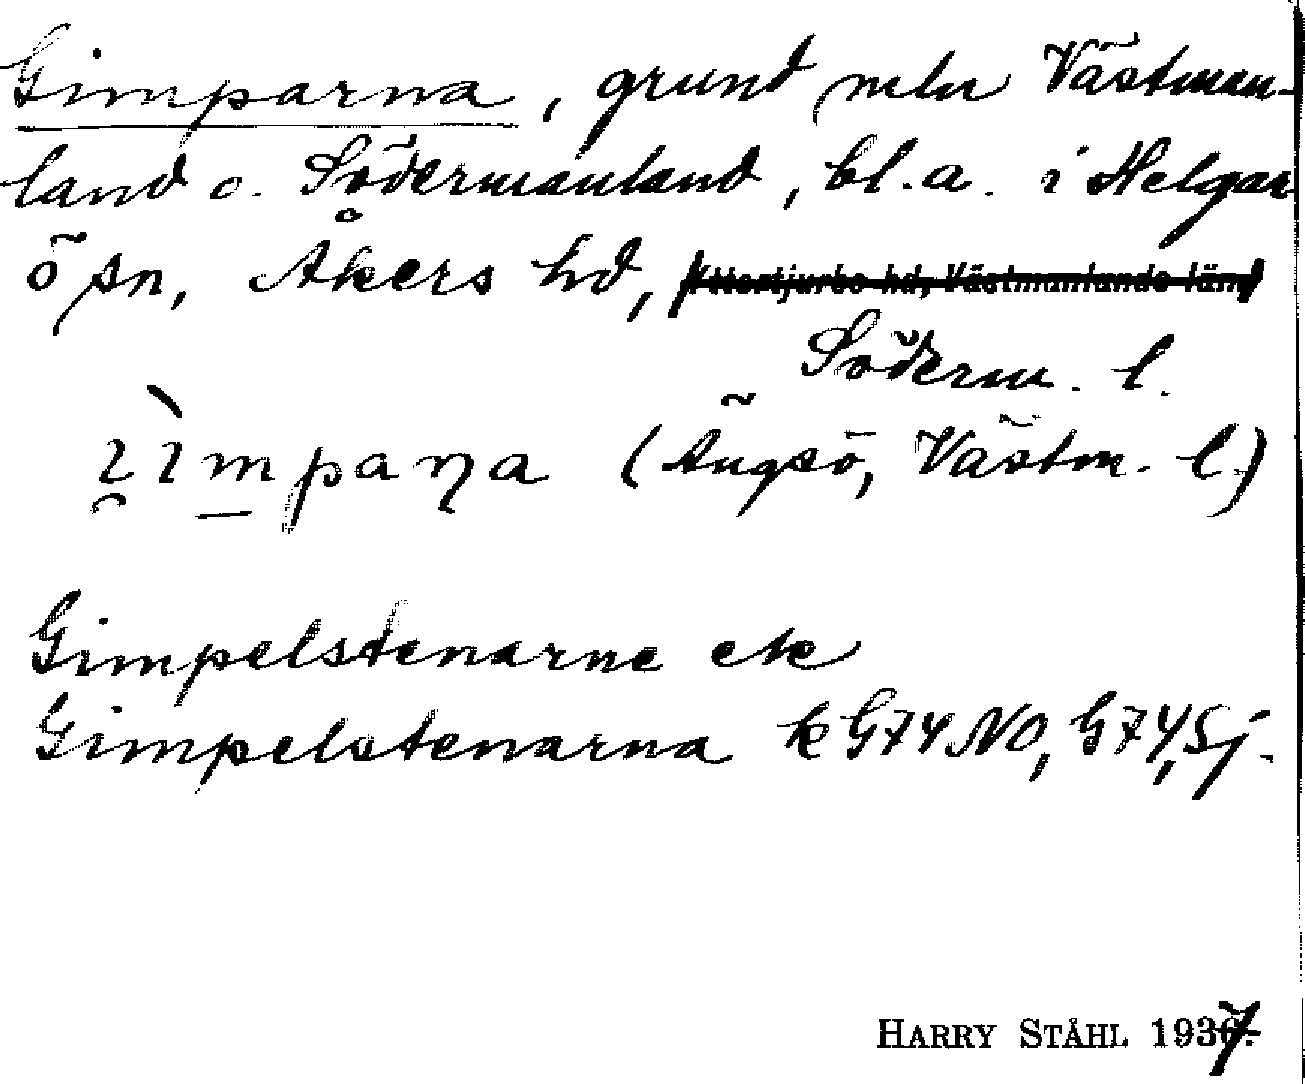 Gimparna, grund mln Västman-
land o. Södermanland, bl.a. i Helgar
ö sn, Åkers hd, Yttertjurbo hd, Västmanlands län
Söderm. l.
(Ängsö, Västm. l.)
Gimpelstenarne ek
Gimpelstenarna k G74NO, G74, Sj.
HARRY STÅHL 1937